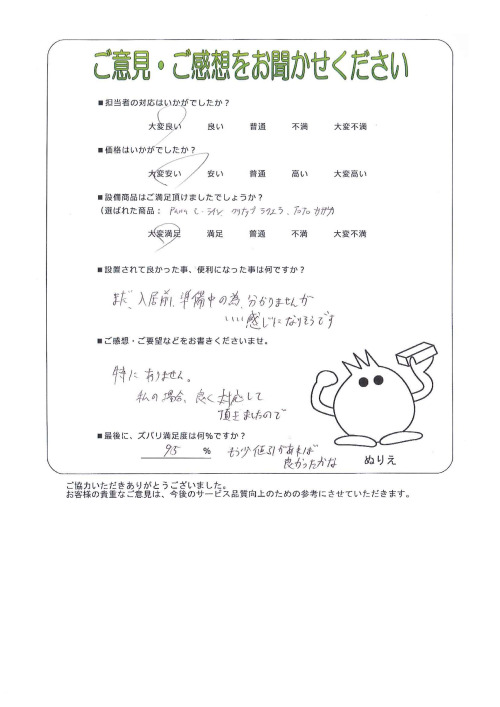 ご意見・ご感想をお聞かせください
■担当者の対応はいかがでしたか？
大変良い 良い 普通 不満 大変不満
■価格はいかがでしたか？
大変安い 安い 普通 高い 大変高い
■設備商品はご満足頂けましたでしょうか？
（選ばれた商品： L-クラス クリナップ ラクエラ、TOTO
大変満足 満足 普通 不満 大変不満
■設置されて良かった事、便利になった事は何ですか？
まだ、入居前、準備中の為、分かりませんが
いい感じになりそうです
■ご感想・ご要望などをお書きくださいませ。
特にありません。
私の場合、良く対応して
頂きましたので
■最後に、ズバリ満足度は何%ですか？
95 % もう少し値引があれば
良かったかな
ぬりえ
ご協力いただきありがとうございました。
お客様の貴重なご意見は、今後のサービス品質向上のための参考にさせていただきます。